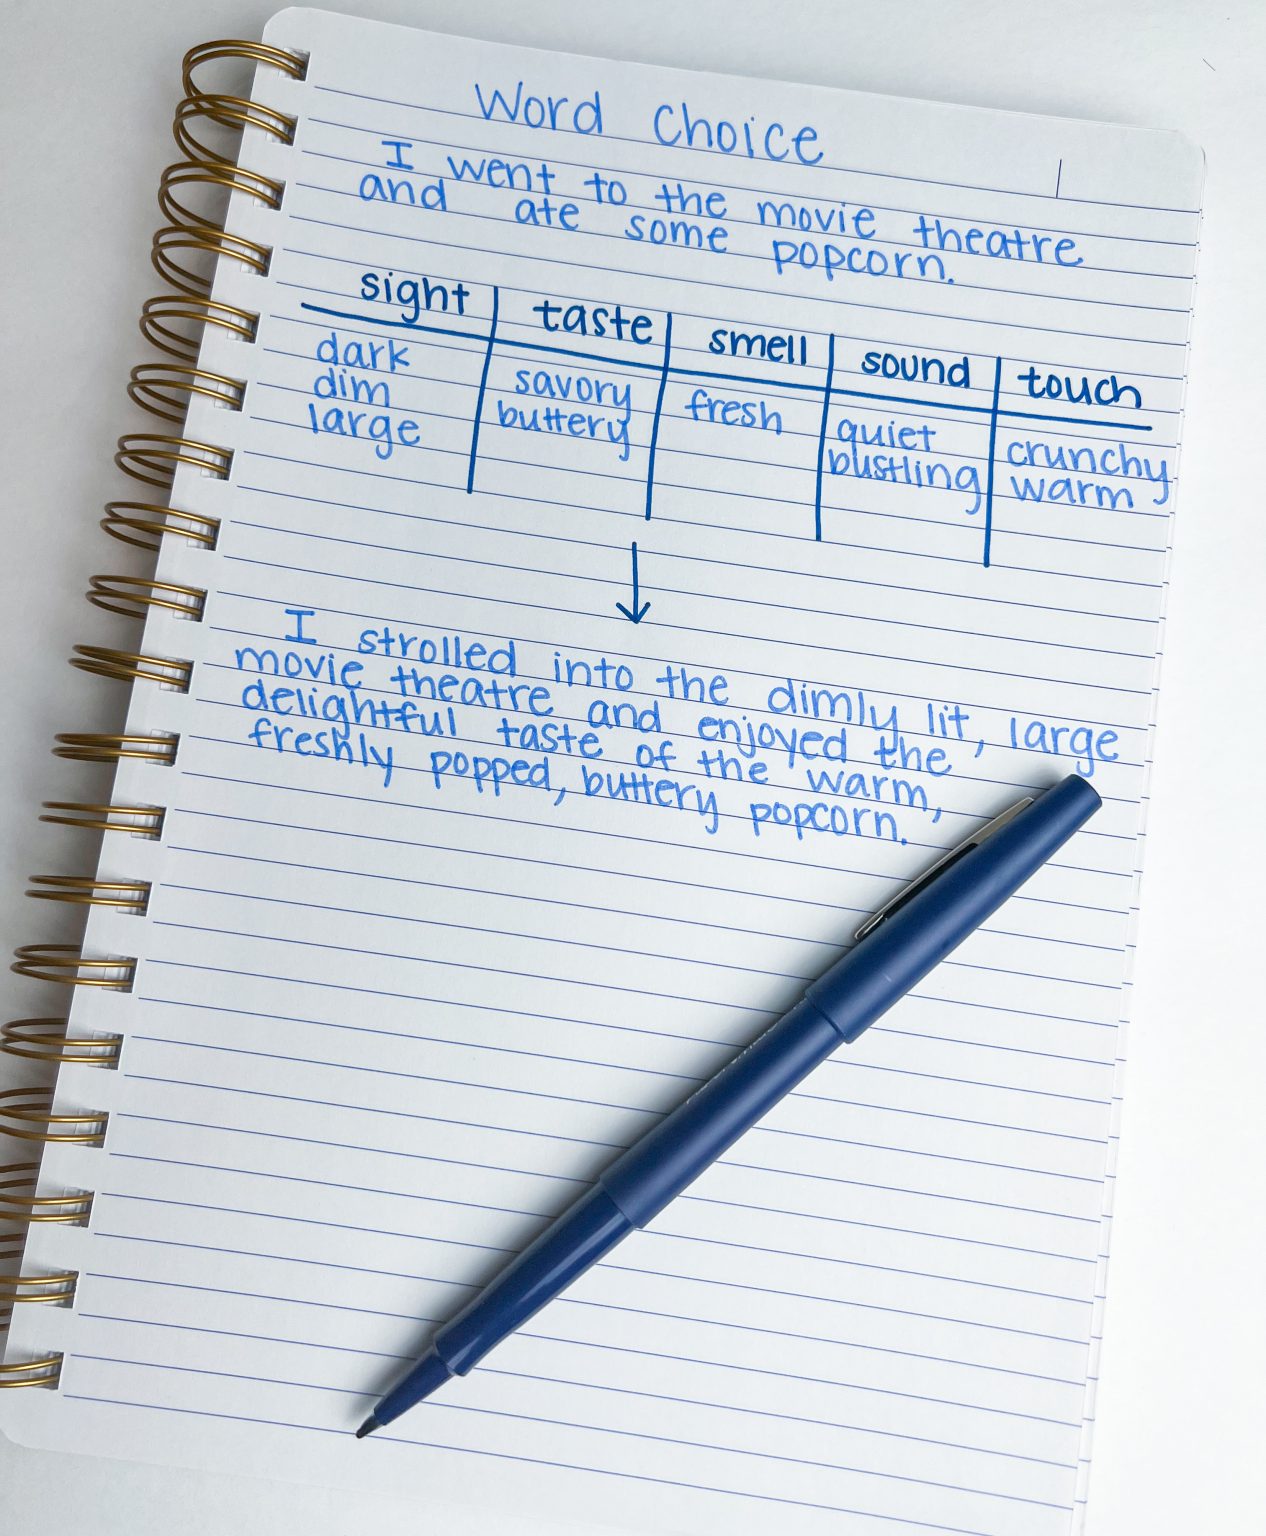 Word Choice
I went to the movie theatre
and ate some popcorn.
sight taste smell sound touch
dark savory fresh quiet crunchy
dim buttery bustling warm
large
I strolled into the dimly lit, large
movie theatre and enjoyed the
delightful taste of the warm,
freshly popped, buttery popcorn.